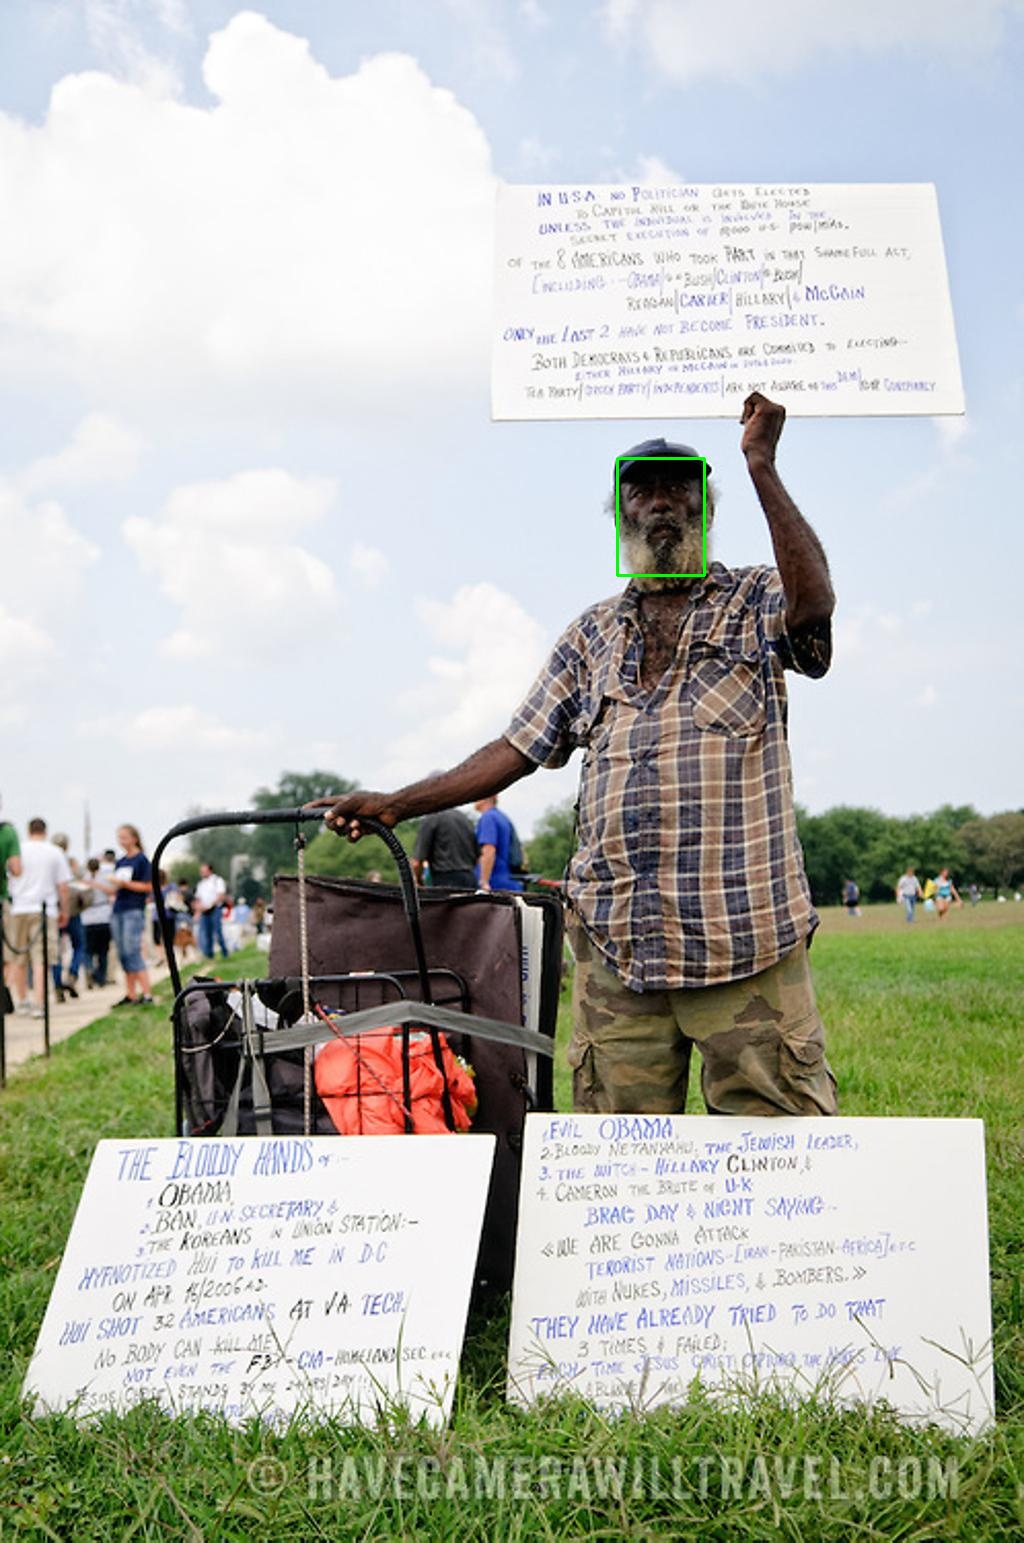 IN U.S.A. NO POLITICIAN GETS ELECTED
TO CAPITOL HILL OR THE WHITE HOUSE
UNLESS THE INDIVIDUAL IS INVOLVED IN THE
SECRET EXECUTION OF U.S. POW/MIAs.
OF THE 8 AMERICANS WHO TOOK PART IN THAT SHAMEFULL ACT,
[INCLUDING:- OBAMA/ BUSH/CLINTON/ BUSH/
REAGAN/CARTER/HILLARY/& McCAIN
ONLY THE LAST 2 HAVE NOT BECOME PRESIDENT.
BOTH DEMOCRATS & REPUBLICANS ARE COMMITED TO ELECTING
EITHER HILLARY OR McCAIN IN
TEA PARTY/GREEN PARTY/INDEPENDENTS/ARE NOT AWARE OF THIS DEM/ CONSPIRACY
THE BLOODY HANDS OF:-
1. OBAMA,
2. BAN, U.N. SECRETARY &
3. THE KOREANS IN UNION STATION:-
HYPNOTIZED HUI TO KILL ME IN D.C
ON APR 16/2006 A.D.
HUI SHOT 32 AMERICANS AT V.A. TECH.
NO BODY CAN KILL ME
NOT EVEN THE FBI-CIA-HOMELAND SEC.
JESUS CHRIST STANDS BY ME 24HRS/DAY!!!
1. EVIL OBAMA,
2. BLOODY NETANYAHU, THE JEWISH LEADER,
3. THE WITCH - HILLARY CLINTON, &
4. CAMERON THE BRUTE OF U.K
BRAG DAY & NIGHT SAYING:-
«WE ARE GONNA ATTACK
TERORIST NATIONS-[IRAN-PAKISTAN-AFRICA] ETC
WITH NUKES, MISSILES, & BOMBERS.»
THEY HAVE ALREADY TRIED TO DO THAT
3 TIMES & FAILED:
EACH TIME JESUS CHRIST CAPTURED THE NUKES
© HAVECAMERAWILLTRAVEL.COM